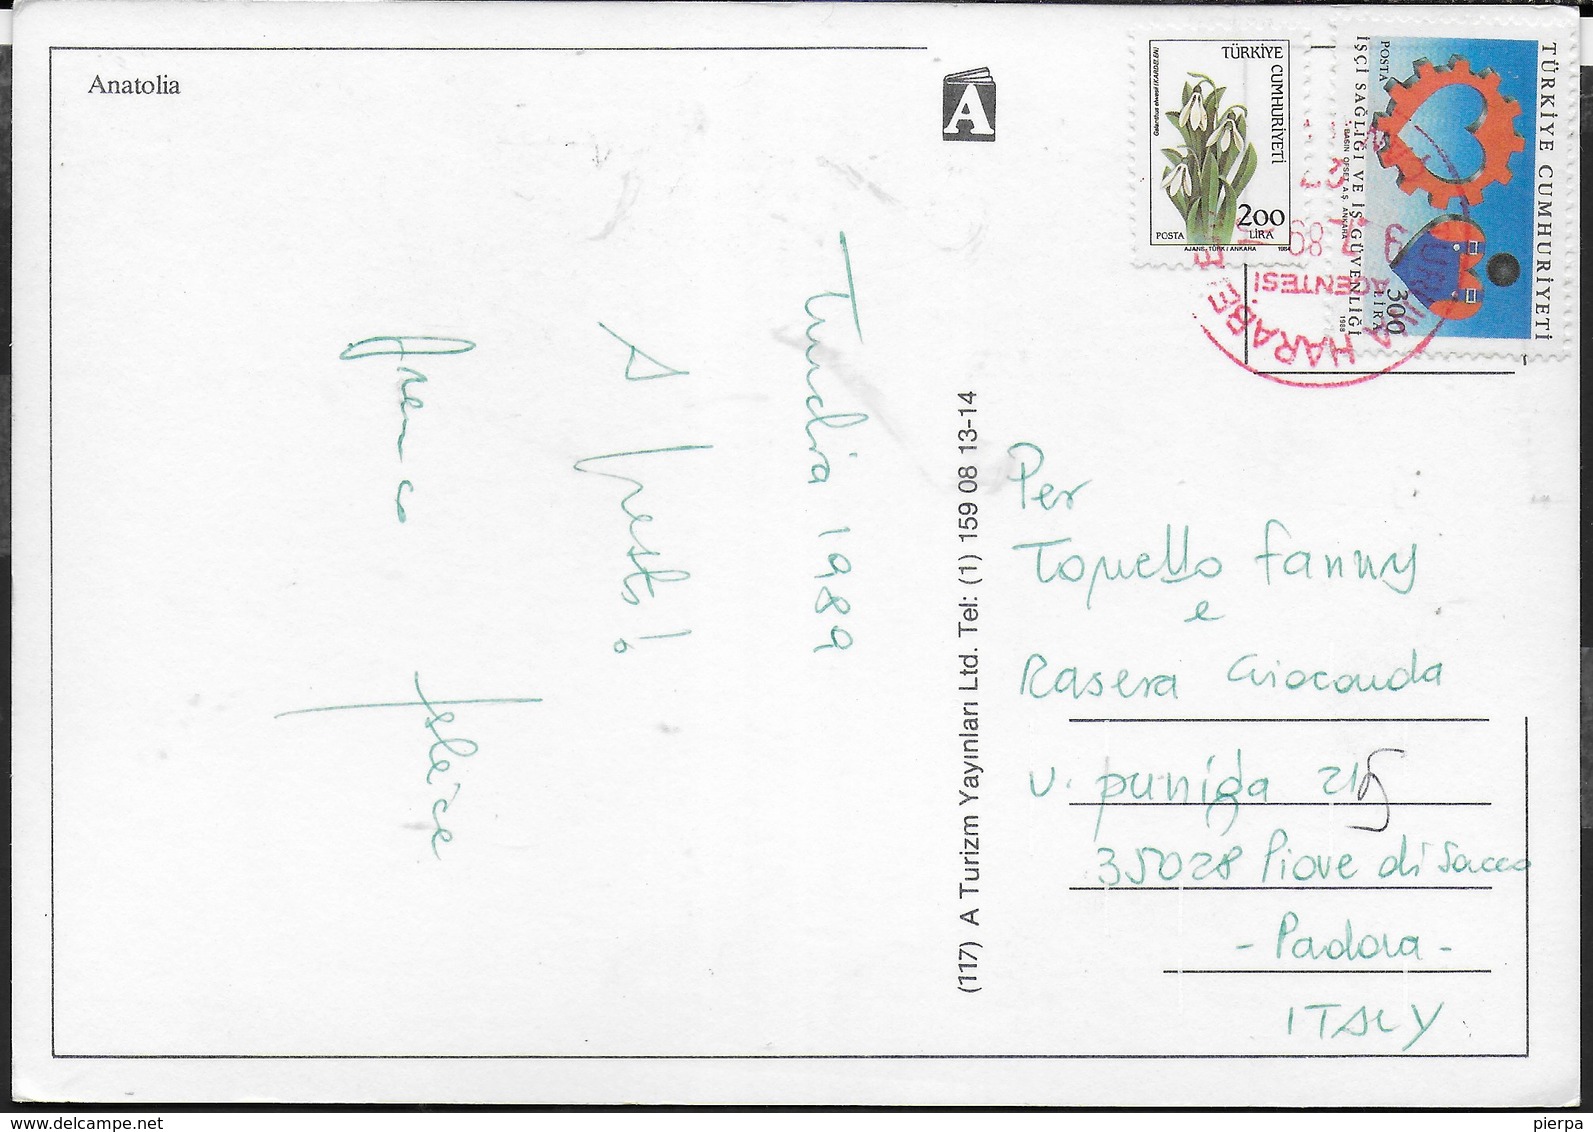 Anatolia
A
TÜRKİYE CUMHURİYETİ
Galanthus elwesii (KARDELEN)
200
LİRA
POSTA
AJANS-TÜRK / ANKARA 1984
TÜRKİYE CUMHURİYETİ
İŞÇİ SAĞLIĞI VE İŞ GÜVENLİĞİ
POSTA
BASIN OFSET A.Ş. ANKARA
300
LİRA
1988
HARABE
AGENTESI
Turchia 1989
A presto!
Felice
(117) A Turizm Yayınları Ltd. Tel: (1) 159 08 13-14
Per
Fanny
e
Rasera Gioconda
v. puniga 215
35028 Piove di Sacco
- Padova -
ITALY
pierpa